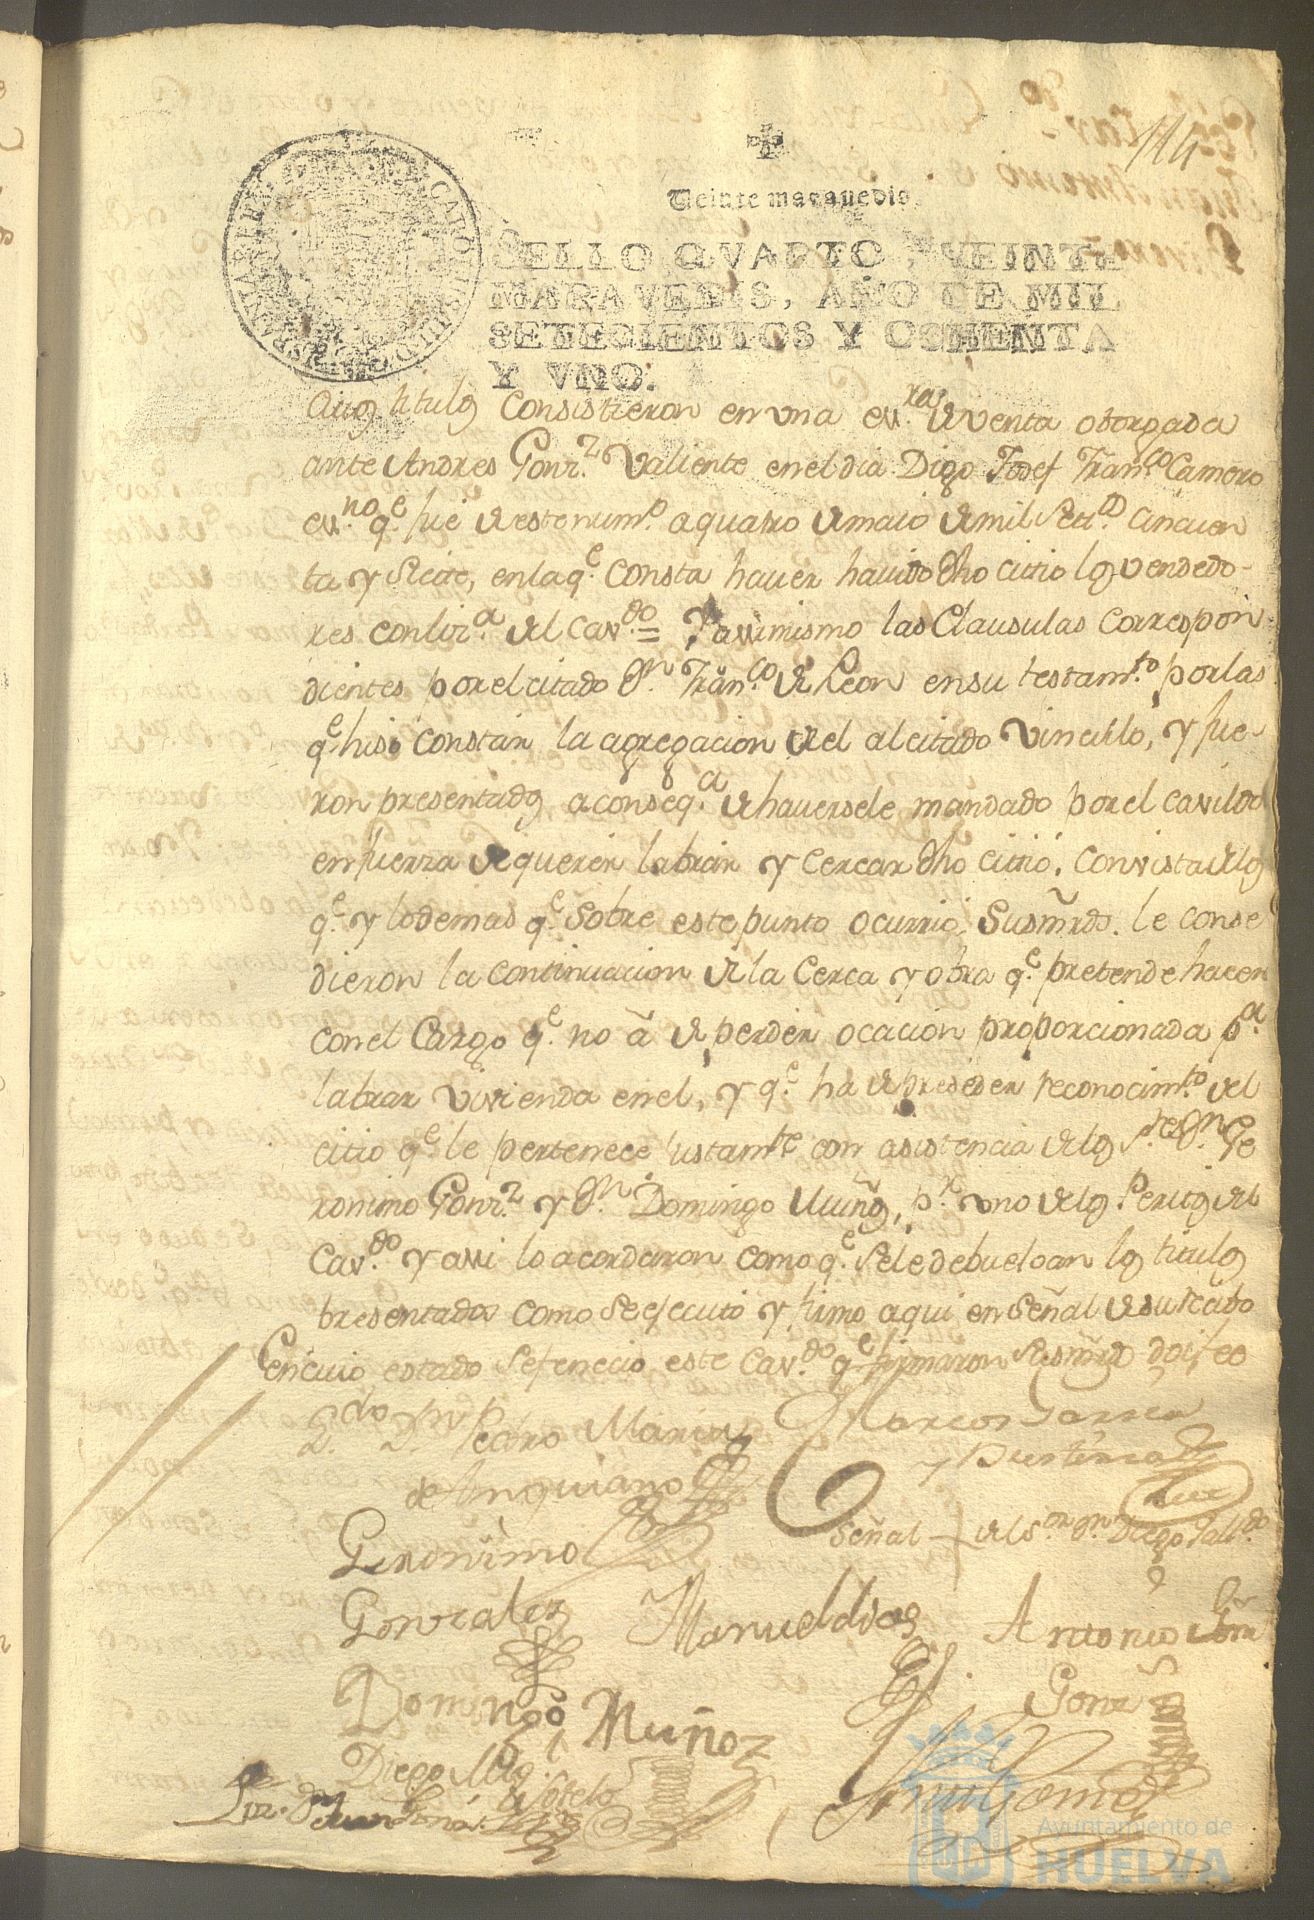 114
Veinte maravedis.
SELLO QVARTO, VEINTE
MARAVEDIS, AÑO DE MIL
SETECIENTOS Y OCHENTA
Y VNO.
cuios titulos consistieron en vna esc.ra de venta otorgada
ante Andres Gonz.z Valiente en el dia Digo Josef Fran.co Camero
es.no q.e fue de este num.o a quatro de maio de mil Set.s cincuen
ta y Siete, en la q.e consta haver havido dho citio los vendedo-
res con liz.a del Cav.do = Y assimismo las Clausulas correspon
dientes por el citado Dn. Fran.co de Leon en su testam.to por las
q.e hiso constar la agregacion del al citado Vinculo, y fue-
ron presentados a conseq.a de haversele mandado por el cavildo
en fuerza de querer labrar y cercar dho citio. Con vista de los
q.e y lo demas q.e Sobre este punto ocurrio, Susmrds. le conse
dieron la continuacion de la Cerca y obra q.e pretende hacer
con el Cargo q.e no à de perder ocacion proporcionada p.a
labrar vivienda en el, y q.e ha de preseder reconocim.to del
citio q.e le pertenece justam.te con asistencia de los S.res Dn. Ge
ronimo Gonz.z y Dn. Domingo Muñoz, p.r vno de los Peritos del
Cav.do y assi lo acordaron como q.e Se le debuelban los titulos
presentados como Se ejecuto y firmo aqui en Señal de su recibo
En cuio estado Se fenecio este Cav.do q.e firmaron Susmrds doi feo
L.do Dn Pedro Maria
de Anguiano
Marcos Garsia
y Bustamante
Señal de l S.or Dn. Diego Gall.do
Geronimo
Gonzalez
Manuel dias
Antonio
Gonz
Domingo Muñoz
Diego
Sotelo
Juan Gomez
Ayuntamiento de
HUELVA